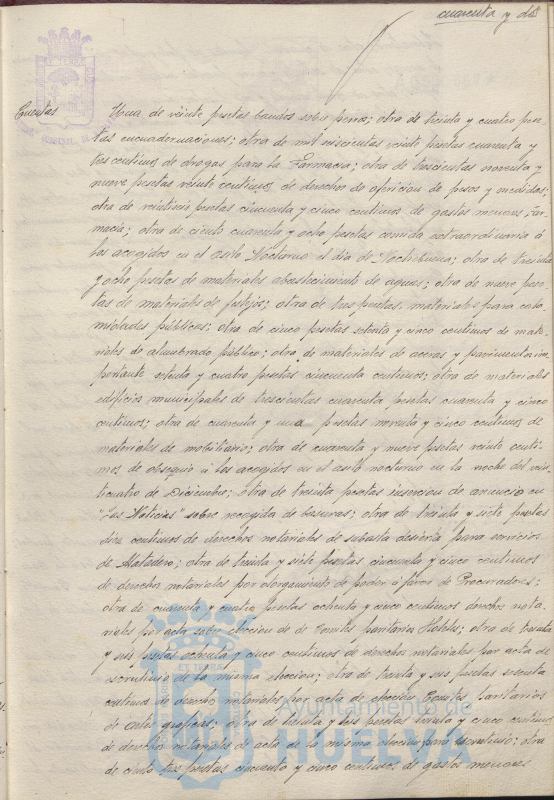 cuarenta y dos
Cuentas Una de veinte pesetas bandos sobre perros; otra de treinta y cuatro pese-
tas encuadernaciones; otra de mil seiscientas veinte pesetas cuarenta y
tres centimos de drogas para la Farmacia; otra de trescientas noventa y
nueve pesetas veinte centimos de derechos de aferición de pesos y medidas;
otra de veintiseis pesetas cincuenta y cinco centimos de gastos menores, Far-
macia; otra de ciento cuarenta y ocho pesetas comida extraordinaria á
los acogidos en el Asilo Nocturno el dia de Nochebuena; otra de treinta
y ocho pesetas de materiales abastecimiento de aguas; otra de nueve pese-
tas de materiales de festejos; otra de tres pesetas, materiales para cala-
midades públicas; otra de cinco pesetas setenta y cinco centimos de mate-
riales de alumbrado público; otra de materiales de aceras y pavimentas im-
portante setenta y cuatro pesetas cincuenta centimos; otra de materiales
edificios municipales de trescientas cuarenta pesetas cuarenta y cinco
centimos; otra de cuarenta y una pesetas noventa y cinco centimos de
materiales de mobiliario; otra de cuarenta y nueve pesetas veinte centi-
mos de obsequio á los acogidos en el asilo nocturno en la noche del vein-
ticuatro de Diciembre; otra de treinta pesetas insercion de anuncio en
"Las Noticias" sobre recogida de basuras; otra de treinta y siete pesetas
diez centimos de derechos notariales de subasta desierta para servicios
de Matadero; otra de treinta y siete pesetas cincuenta y cinco centimos
de derechos notariales por otorgamiento de poder á favor de Procuradores;
otra de cuarenta y cuatro pesetas ochenta y cinco centimos derechos nota-
riales por acta sobre eleccion de de Comites paritarios Hoteles; otra de treinta
y seis pesetas ochenta y cinco centimos de derechos notariales por acta de
escrutinio de la misma eleccion; otra de treinta y seis pesetas sesenta
centimos de derecho notariales por acta de elección Comites paritarios
de artes graficas; otra de treinta y seis pesetas treinta y cinco centimos
de derechos notariales de acta de la misma eleccion para escrutinio; otra
de ciento tres pesetas cincuenta y cinco centimos de gastos menores
Ayuntamiento de
HUELVA